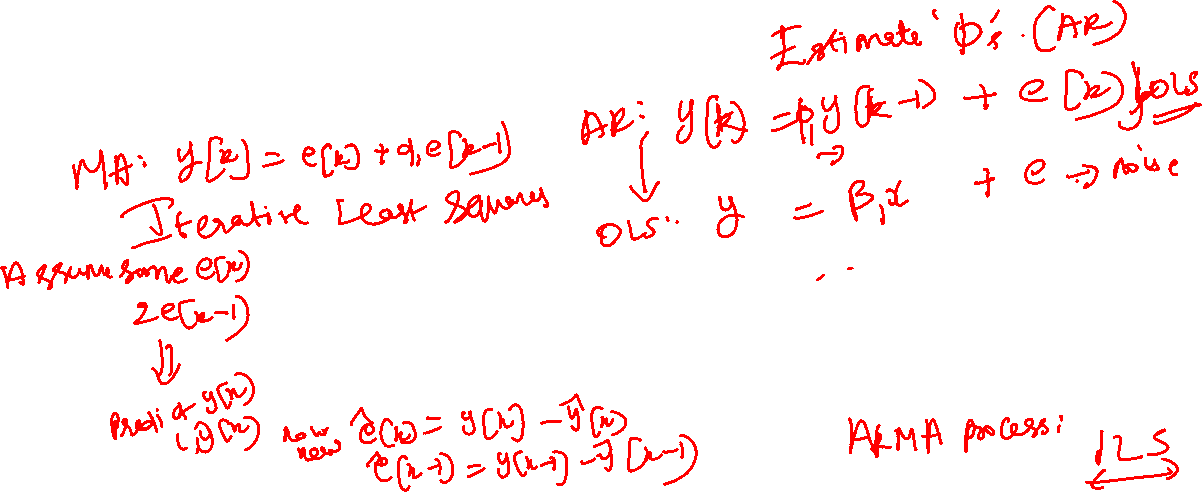 Estimate ϕ's. (AR)
AR: y[k] = ϕ₁y(k-1) + e[k] } OLS
OLS: y = β₁x + e → noise
MA: y[k] = e[k] + θ₁e[k-1]
Iterative Least Squares
Assume some e[k]
2 e[k-1]
Predict y[k]
ŷ[k]
now new ê[k] = y[k] - ŷ[k]
ê[k-1] = y[k-1] - ŷ[k-1]
ARMA process:
ILS